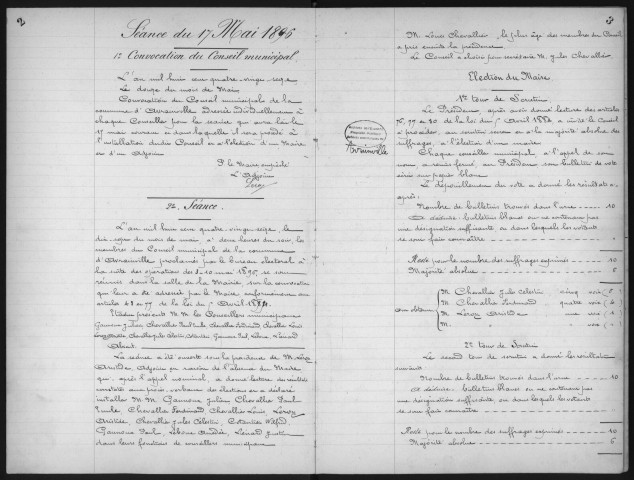 2
Séance du 17 Mai 1896
1° Convocation du Conseil municipal
L'an mil huit cent quatre-vingt-seize
Le douze du mois de Mai
Convocation du Conseil municipal de la
commune d'Avrainville adressée individuellement à
chaque Conseiller pour la séance qui aura lieu le
17 mai courant et dans laquelle il sera procédé à
l'installation dudit Conseil et à l'élection d'un Maire
et d'un Adjoint
P. le Maire empêché
L'Adjoint
Leroy
2e. Séance.
L'an mil huit cent quatre-vingt-seize, le
dix-sept du mois de mai, à deux heures du soir, les
membres du Conseil municipal de la commune
d'Avrainville proclamés par le bureau électoral à
la suite des opérations des 3 et 10 mai 1896, se sont
réunis dans la salle de la Mairie, sur la convocation
qui leur a été adressée par le Maire, conformément aux
articles 48 et 77 de la loi du 5 Avril 1884.
Etaient présents M. M. les Conseillers municipaux
Absent
La séance a été ouverte sous la présidence de M. Leroy
Aristide Adjoint en raison de l'absence du Maire
qui, après l'appel nominal, a donné lecture des résultats
constatés aux procès-verbaux des élections et a déclaré
installer M. M. Gannou Julien Chevallier Paul
Chevallier Ferdinand Chevallier Louis, Leroy
Aristide, Chevallier Jules Célestin
dans leurs fonctions de conseillers municipaux
3
M. Louis Chevallier, le plus âgé des membres du Conseil
a pris ensuite la présidence.
Le Conseil a choisi pour secrétaire M. Jules Chevallier
Election du Maire
1er tour de Scrutin
Le Président, après avoir donné lecture des articles
76, 77 et 80 de la loi du 5 Avril 1884, a invité le Conseil
à procéder, au scrutin secret et à la majorité absolue des
suffrages, à l'élection d'un maire.
Chaque conseiller municipal, à l'appel de son
nom, a remis fermé, au Président son bulletin de vote
écrit sur papier blanc.
Le dépouillement du vote a donné les résultats ci-
après:
Nombre de bulletins trouvés dans l'urne 10
A déduire: bulletins blancs ou ne contenant pas
une désignation suffisante ou dans lesquels les votants
se sont fait connaître
Reste pour le nombre des suffrages exprimés 10
Majorité absolue 6
Ont obtenu
M. Chevallier Jules Célestin cinq voix (5)
M. Chevallier Ferdinand quatre voix (4)
M. Leroy Aristide une voix (1)
M. voix ( )
2e tour de Scrutin
Le second tour de scrutin a donné les résultats
suivants
Nombre de bulletins trouvés dans l'urne 10
A déduire: bulletins blancs ou ne contenant pas
une désignation suffisante, ou dans lesquels les votants
se sont fait connaître
Reste pour le nombre des suffrages exprimés 10
Majorité absolue 6